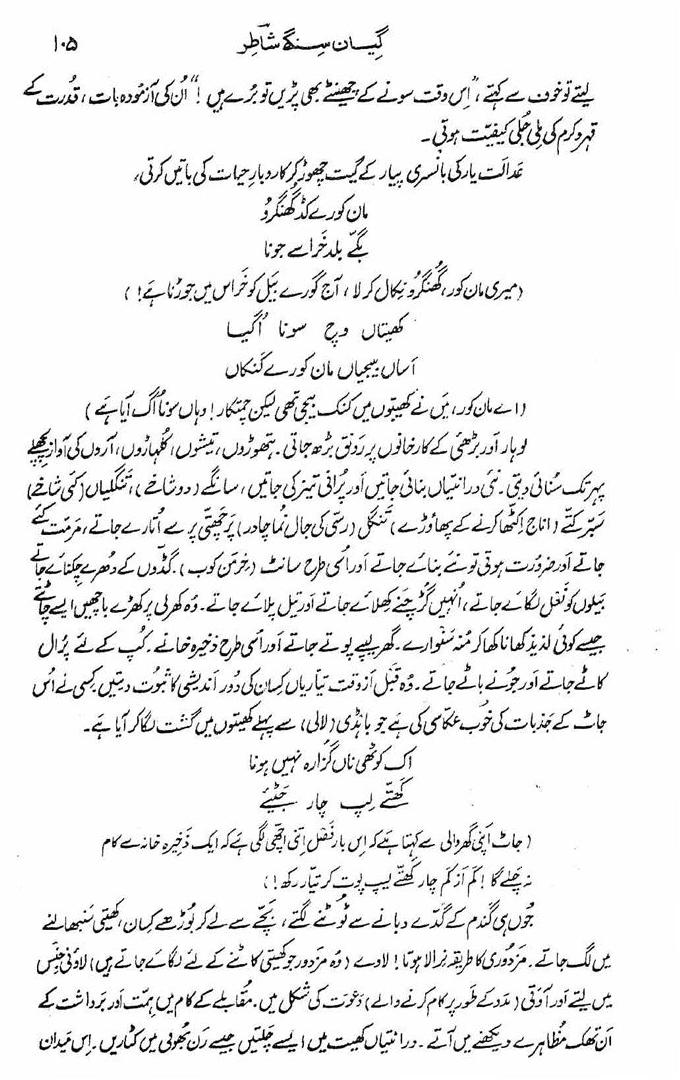 گیان سنگھ شاطر ۱۰۵
لیتے تو خوف سے کہتے، "اِس وقت سونے کے چھینٹے بھی پڑیں تو بُرے ہیں!" اُن کی آزمودہ بات، قُدرت کے
قہر و کرم کی مِلی جُلی کیفیّت ہوتی۔
عدالت یار کی بانسری پیار کے گیت چھوڑ کر کاروبارِ حیات کی باتیں کرتی،
مان کورے کڈ گھُنگرُو
بگّے بلد خراسے جونا
(میری مان کور، گھُنگرُو نکال کر لا، آج گورے بَیل کو خَراس میں جوڑنا ہے!)
کھیتاں وِچ سونا اُگیا
اساں بیجیاں مان کورے کَنکاں
(اے مان کور، مَیں نے کھیتوں میں کنک بیجی تھی لیکن چمتکار! وہاں سونا اُگ آیا ہے)
لوہار اَور بڑھئی کے کارخانوں پر رَونق بڑھ جاتی۔ ہتھوڑوں، تیشوں، کُلہاڑوں، آروں کی آواز پچھلے
پہر تک سُنائی دیتی۔ نئی درانتیاں بنائی جاتیں اَور پُرانی تیز کی جاتیں، سانگے (دو شاخے)، تنگلیاں (کئی شاخے)
(اناج اِکٹھا کرنے کے پھاوڑے) تَنگل (رسّی کی جال نُما چادر) پَرچھتّی پر سے اُتارے جاتے، مرمّت کئے
جاتے اَور ضرورت ہوتی تو نئے بنائے جاتے اَور اُسی طرح سانٹ (خِرمن کوب)۔ گڈّوں کے دُھرے چِکنائے جاتے
بَیلوں کو نَعل لگائے جاتے، اُنہیں گُڑ چنے کِھلائے جاتے اَور تیل پلائے جاتے۔ وُہ کھرلی پر کھڑے باچھیں ایسے چاٹتے
جیسے کوئی لذیذ کھانا کھا کر مُنہ سنوارے۔ گھر لیپے پوتے جاتے اَور اُسی طرح ذخیرہ خانے۔ کُپ کے لئے پرال
کاٹے جاتے اَور جُونے باٹے جاتے۔ وُہ قبل اَز وقت تیّاریاں کِسان کی دُور اَندیشی کا ثبوت دیتیں۔ کِسی نے اُس
جاٹ کے جَذبات کی خُوب عکّاسی کی ہے جو بانڈی (لالی) سے پہلے کھیتوں میں گشت لگا کر آیا ہے۔
اک کوٹھی ناں گُزارہ نہیں ہونا
کَھتّے لِپ چار جٹیئے
(جاٹ اَپنی گھر والی سے کہتا ہے کہ اِس بار فَصل اِتنی اچھّی لگی ہے کہ ایک ذَخیرہ خانے سے کام
نہ چلے گا! کم اَز کم چار کھتّے لیپ پوت کر تیّار رکھ!)
جُوں ہی گندم کے گدّے دبانے سے ٹُوٹنے لگتے، بَچّے سے لے کر بُوڑھے کِسان، کھیتی سَنبھالنے
میں لگ جاتے۔ مزدُوری کا طریقہ نِرالا ہوتا! لاوے (وُہ مزدور جو کھیتی کاٹنے کے لئے لگائے جاتے ہیں) لاوٗنی جِنس
میں لیتے اَور آوَتی (مَدد کے طَور پر کام کرنے والے) دعوَت کی شکل میں۔ مُقابلے کے کام میں ہمّت اَور بَرداشت کے
اَن تھک مظاہرے دیکھنے میں آتے۔ درانتیاں کھیت میں ایسے چلتیں جیسے رَن بھُومی میں کٹاریں۔ اِس مَیدان